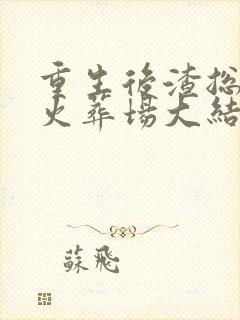 重生後渣総
火葬場大結
蘇飛